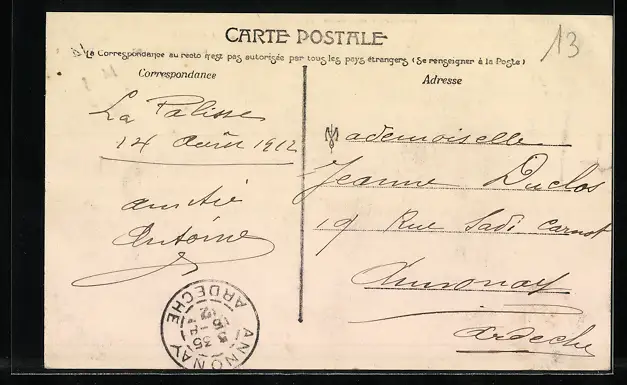 CARTE POSTALE
La Correspondance au recto n'est pas autorisée par tous les pays étrangers (Se renseigner à la Poste)
13
Correspondance
Adresse
La Palisse
14 Août 1912
amitié
Antoine
Mademoiselle
Jeanne Duclos
19 Rue Sadi Carnot
Annonay
Ardèche
ANNONAY
ARDECHE